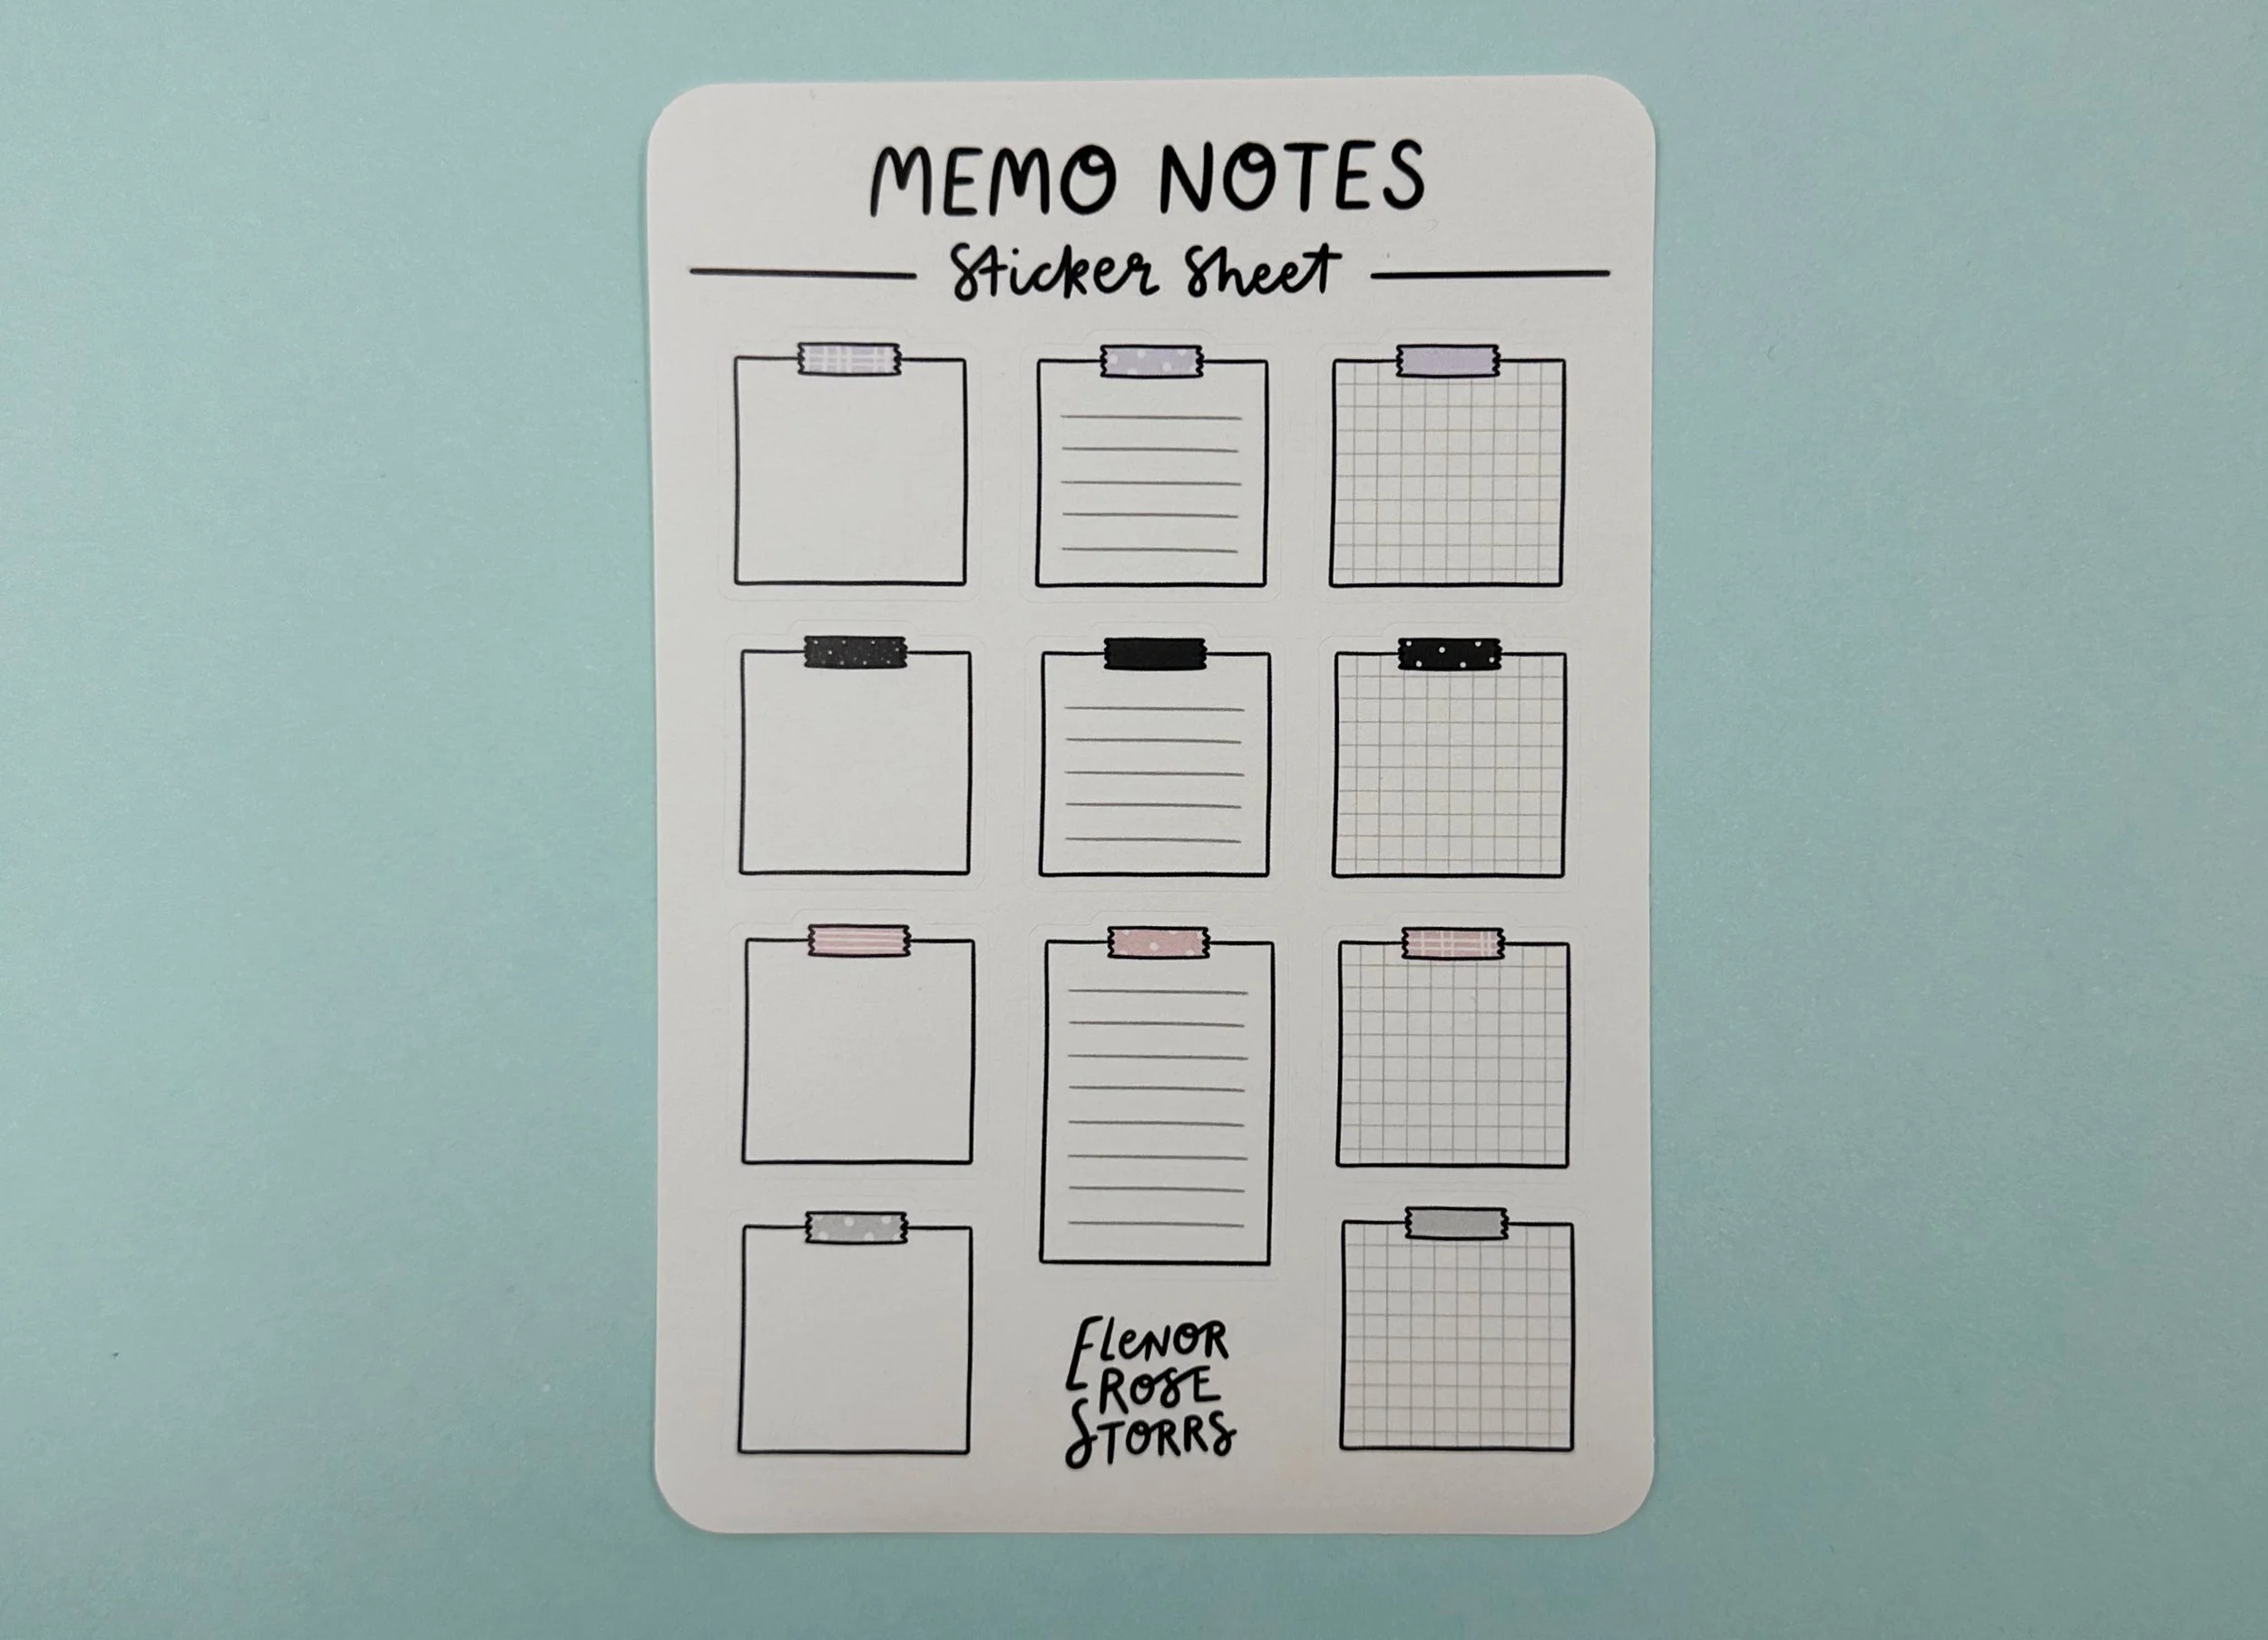 MEMO NOTES
Sticker Sheet
ELENOR
ROSE
STORRS